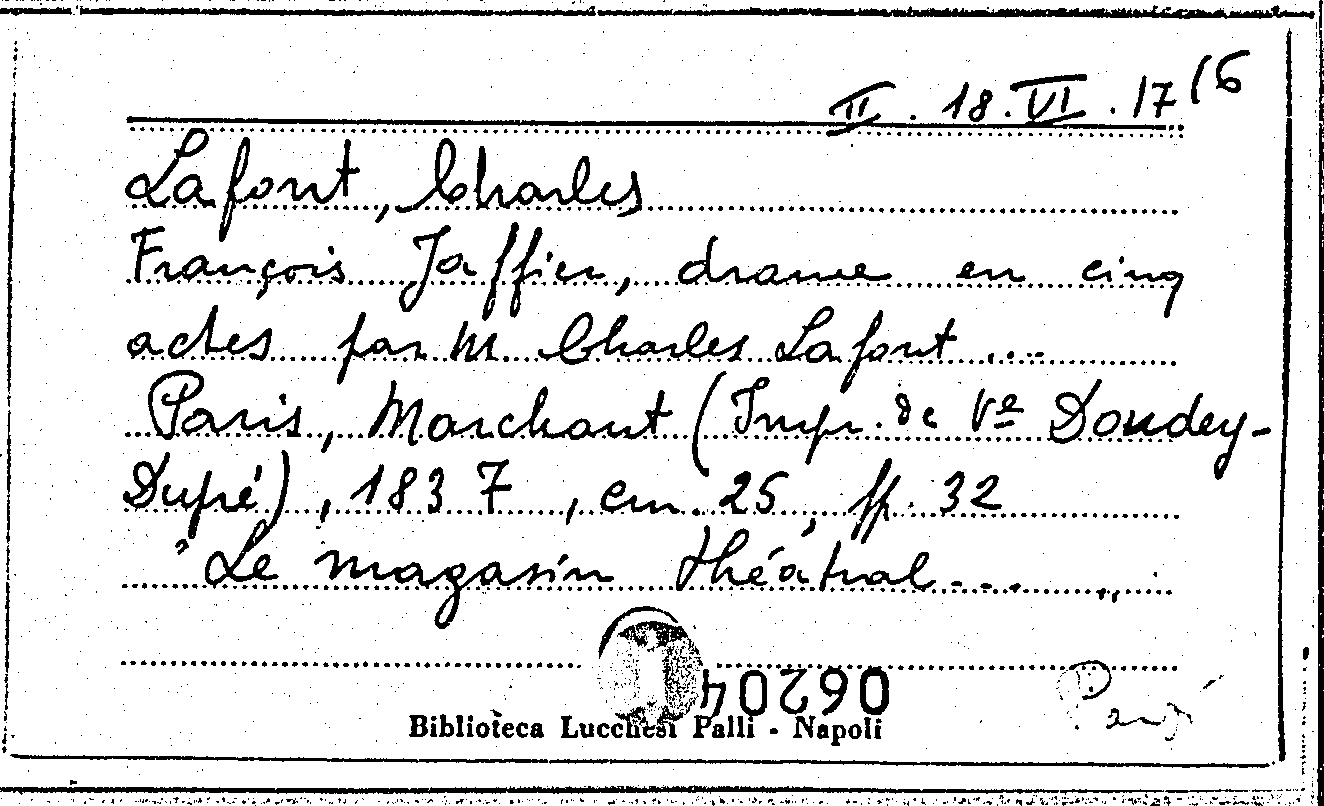 II. 18. VI. 17 (6
Lafont, Charles
François Jaffier, drame en cinq
actes par M. Charles Lafont ....
Paris, Marchant (Impr. de Vᵉ Dondey-
Dupré), 1837, cm. 25, pp. 32
"Le magasin théâtral... ..
06204
Biblioteca Lucchesi Palli - Napoli